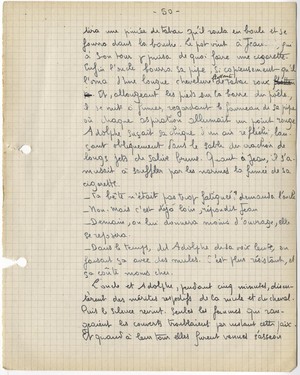 - 50 -
tira une pincée de tabac qu'il roula en boule et se
fourra dans la bouche. Le pot vint à Jean
à son tour y puisa de quoi faire une cigarette
Enfin l'oncle bourra sa pipe, si copieusement qu'il
l'orna d'une longue chevelure de tabac
Et, allongeant les pieds sur la barre du poêle,
il se mit à fumer, regardant le fourneau de sa pipe
où chaque aspiration allumait un point rouge
Adolphe suçait sa chique d'un air réfléchi, lan-
çant obliquement dans le sable du crachoir de
longs jets de salive brune. Quant à Jean, il s'a-
musait à souffler par les narines la fumée de sa
cigarette.
- La bête n'était pas trop fatiguée? demanda l'oncle
- Non. mais c'est déjà loin, répondit Jean
- Demain, on leur donnera moins d'ouvrage, elle
se reposera.
- Dans le temps, dit Adolphe de sa voix lente, on
faisait ça avec des mules. C'est plus résistant, et
ça coûte moins cher.
L'oncle et Adolphe, pendant cinq minutes, discu-
tèrent des mérites respectifs de la mule et du cheval.
Puis le silence revint. Seules les femmes qui ran-
geaient les couverts troublaient par instant cette paix
Et quand à leur tour elles furent venues s'asseoir